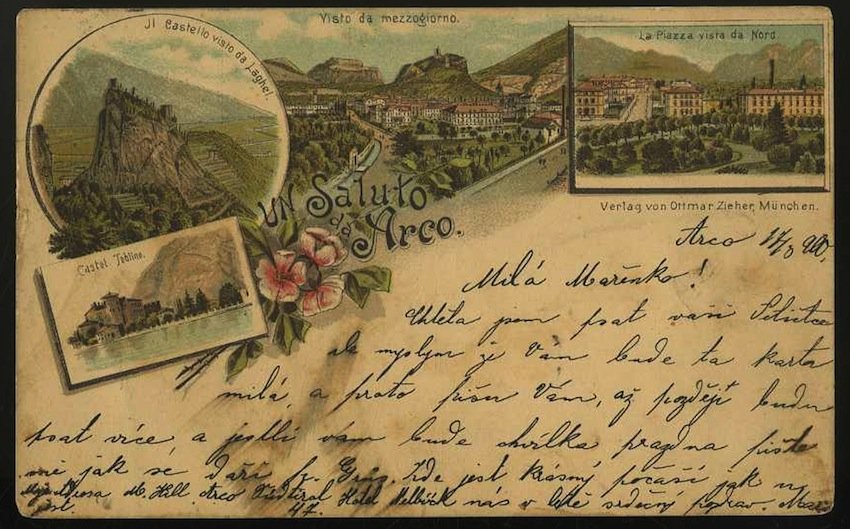 Il Castello visto da Laghel.
Visto da mezzogiorno.
La Piazza vista da Nord
Castel Tobline.
Un Saluto
da
Arco.
Verlag von Ottmar Zieher, München.
Arco 17/3 900,
Milá Mařenko!
Chtěla jsem psat vaší
myslym že Vám bude ta karta
milá a proto píšu Vám, až později budu
psat více a jestli vám bude chvilka prazdna pište
mé jak sé daří Zde jest krásný počasí jak u
M. Hill Arco Südtirol Hotel nás v létě srdečný pozdrav.
47.